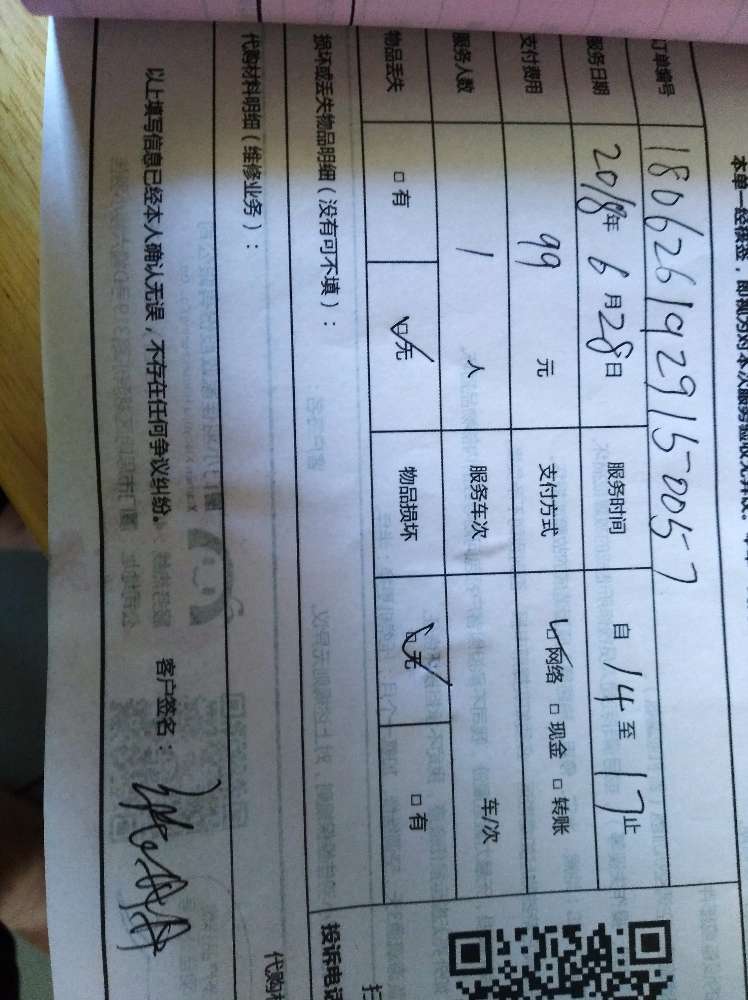 本单一经
订单编号 1806261929150057
服务日期 2018年6月28日 服务时间 自14至17止
支付费用 99元 支付方式 ☑网络 □现金 □转账
服务人数 1人 服务车次 车/次
物品丢失 □有 ☑无 物品损坏 ☑无 □有
损坏或丢失物品明细（没有可不填）：
投诉电话
代购材料明细（维修业务）：
以上填写信息已经本人确认无误，不存在任何争议纠纷。 客户签名：